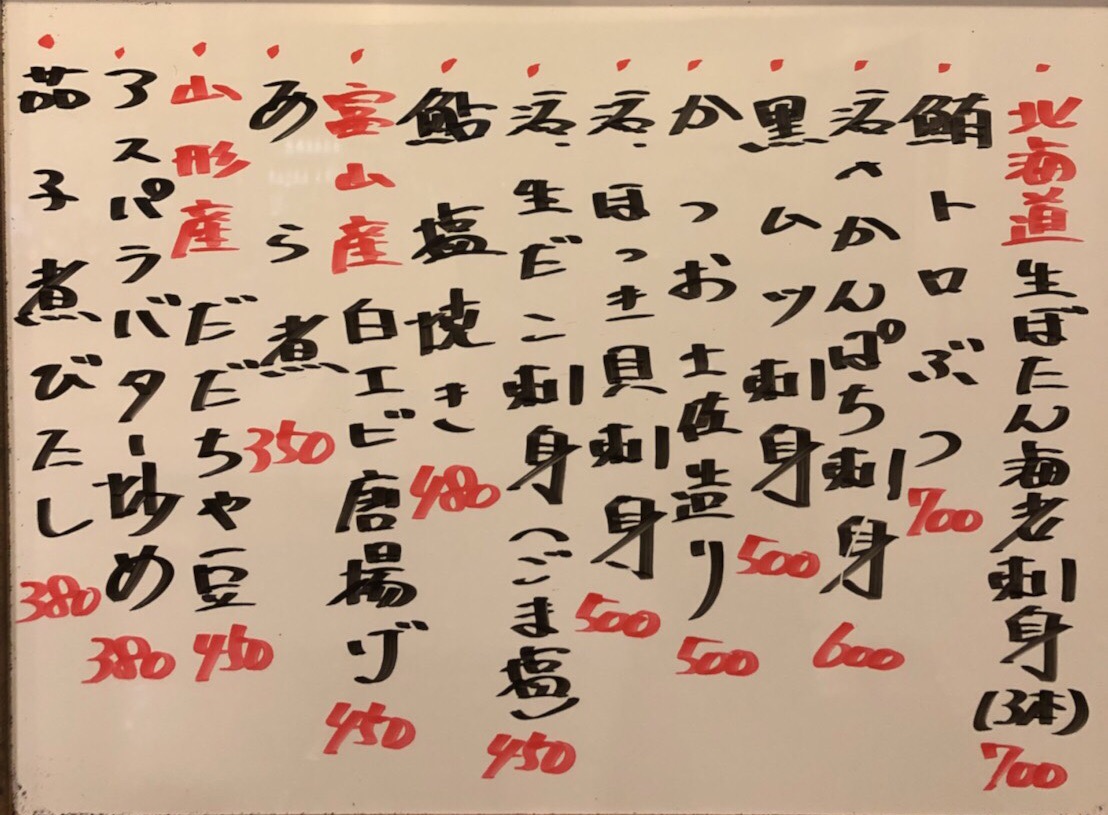 北海道生ぼたん海老刺身(3本) 700
鮪トロぶつ 700
活〆かんぱち刺身 600
黒ムツ刺身 500
かつお土佐造り 500
活ほっき貝刺身 500
活生だこ刺身(ごま塩) 450
鮎塩焼き 480
富山産白エビ唐揚げ 450
あら煮 350
山形産だだちゃ豆 450
アスパラバター炒め 380
茄子煮びたし 380